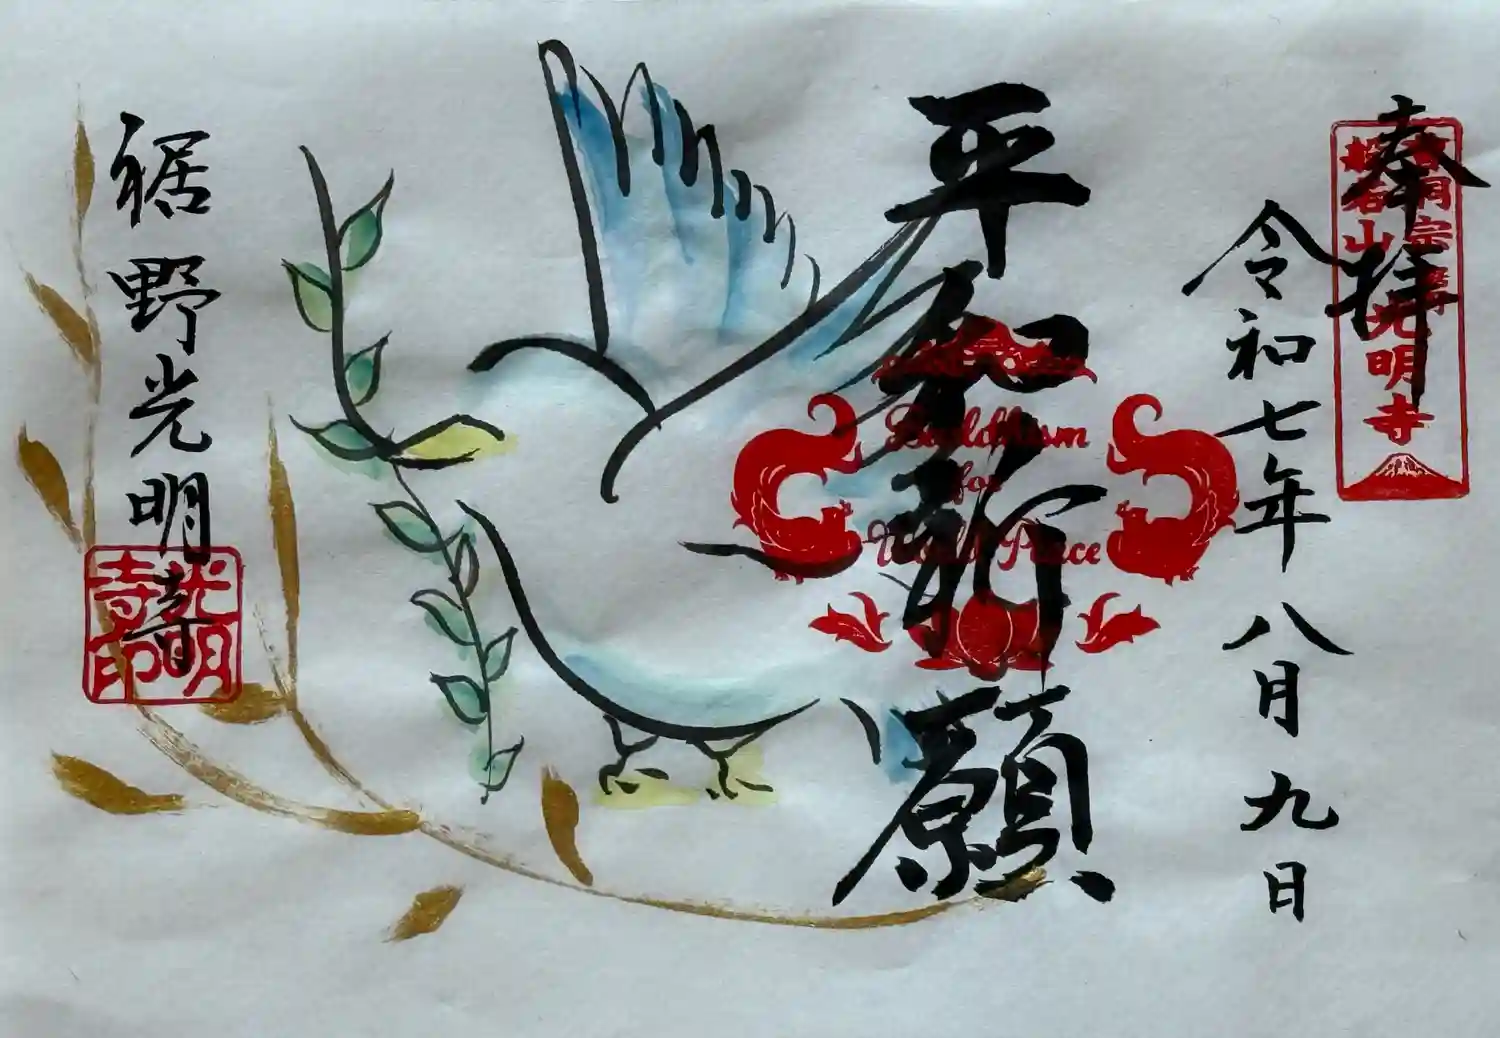 奉拝
光明寺
令和七年 八月 九日
平和祈願
Buddhism
for
World Peace
裾野光明寺
光明
寺印